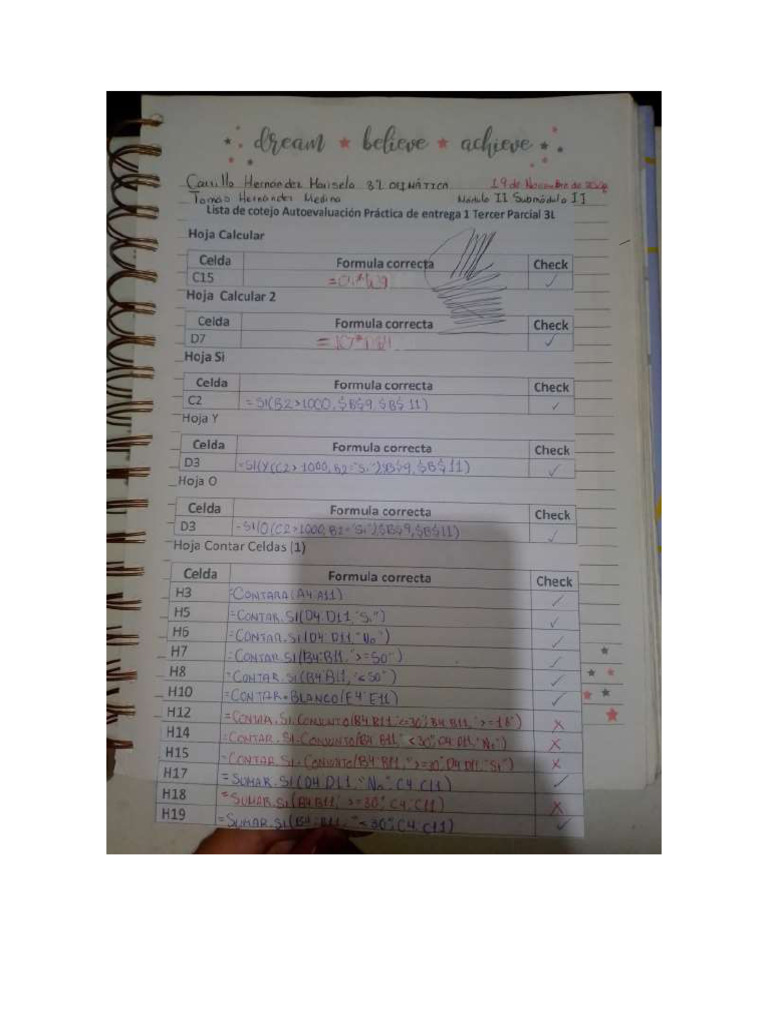 dream ★ believe ★ achieve
Carrillo Hernández Marisela 3L OFIMÁTICA 19 de Noviembre de
Tomás Hernández Medina Módulo II Submódulo II
Lista de cotejo Autoevaluación Práctica de entrega 1 Tercer Parcial 3L
Hoja Calcular
Celda Formula correcta Check
C15 ✓
Hoja Calcular 2
Celda Formula correcta Check
D7 ✓
Hoja Si
Celda Formula correcta Check
C2 =SI(B2>1000,$B$9,$B$11) ✓
Hoja Y
Celda Formula correcta Check
D3 =SI(Y(C2>1000,B2="Si"),$B$9,$B$11) ✓
Hoja O
Celda Formula correcta Check
D3 =SI(O(C2>1000,B2="Si")$B$9,$B$11) ✓
Hoja Contar Celdas (1)
Celda Formula correcta Check
H3 =CONTARA(A4:A11) ✓
H5 =CONTAR.SI(D4:D11,"Si") ✓
H6 =CONTAR.SI(D4:D11,"No") ✓
H7 =CONTAR.SI(B4:B11,">=50") ✓
H8 =CONTAR.SI(B4:B11,"<50") ✓
H10 =CONTAR.BLANCO(E4:E11) ✓
H12 .SI.CONJUNTO(B4:B11,"<=30",B4:B11,">=18") ✗
H14 =CONTAR.SI.CONJUNTO(B4:B11,"<30",D4:D11,"No") ✗
H15 =CONTAR.SI.CONJUNTO(B4:B11,">=30",D4:D11,"Si") ✗
H17 =SUMAR.SI(D4:D11,"No",C4:C11) ✓
H18 =SUMAR.SI(B4:B11,">=30",C4:C11) ✗
H19 =SUMAR.SI(B4:B11,"<30",C4:C11) ✓